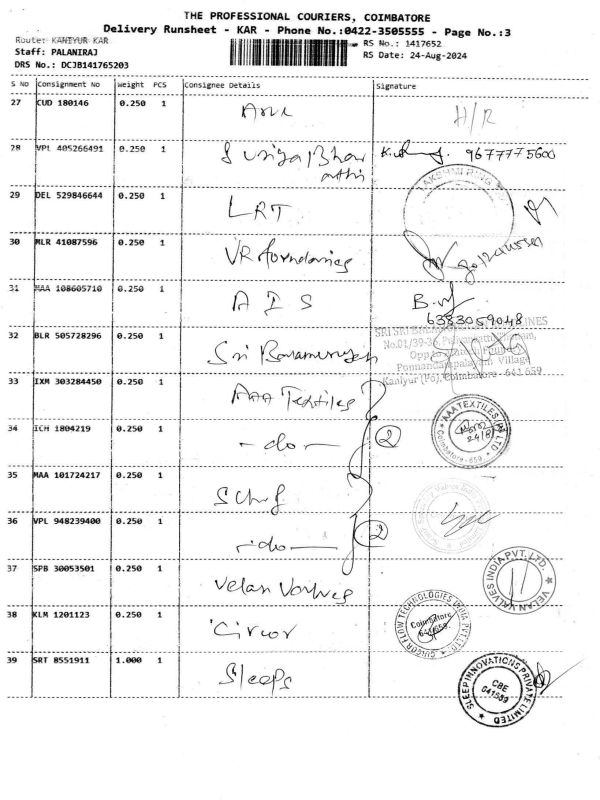 THE PROFESSIONAL COURIERS, COIMBATORE
Delivery Runsheet - KAR - Phone No.:0422-3505555 - Page No.:3
Route: KANIYUR KAR
RS No.: 1417652
Staff: PALANIRAJ
RS Date: 24-Aug-2024
DRS No.: DCJB141765203
S No Consignment No Weight PCS Consignee Details Signature
27 CUD 180146 0.250 1 H/R
28 VPL 405266491 0.250 1 9677775600
29 DEL 529846644 0.250 1 LRT
LAKSHMI RING
30 MLR 41087596 0.250 1 VR
31 MAA 108605710 0.250 1 A I S
6383059048
32 BLR 505728296 0.250 1 Sri
Kaniyur (Po), Coimbatore - 641 659
33 IXM 303284450 0.250 1 AAA Textiles
34 ICH 1804219 0.250 1 - do - 2
AAA TEXTILES (P) LTD
Coimbatore - 659.
35 MAA 101724217 0.250 1
36 VPL 948239400 0.250 1 - do - 2
37 SPB 30053501 0.250 1 Velan Valves
VELAN VALVES INDIA PVT. LTD.
38 KLM 1201123 0.250 1 Circor
CIRCOR FLOW TECHNOLOGIES INDIA PVT LTD
Coimbatore
641 659.
39 SRT 8551911 1.000 1 Sleeps
SLEEP INNOVATIONS PRIVATE LIMITED
CBE
641659